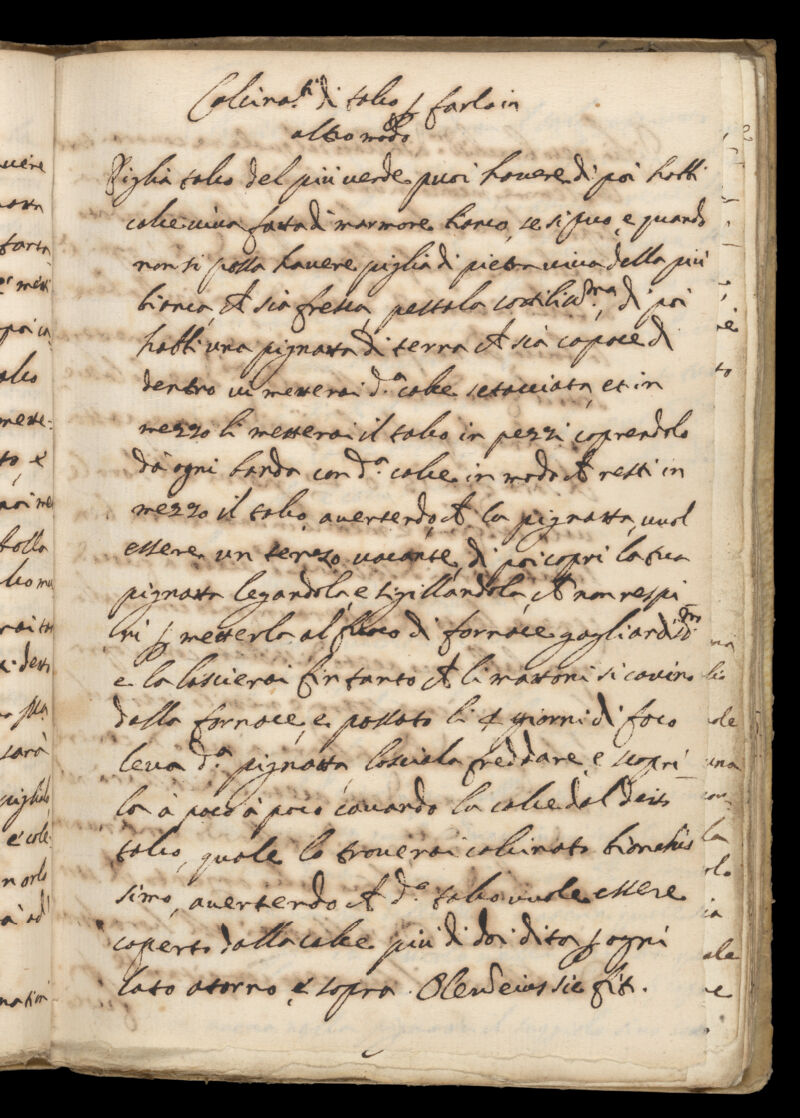 Calcina.ti di talco p farlo in
altro modo
Piglia talco del più verde puoi havere di poi habbi
calce viva fatta di marmore bianco, se si puo, e quando
non si possa havere piglia di pietra viva della più
bianca, ch sia fresca, pestala, di poi
habbi una pignatta di terra ch sia capace di
dentro vi metterai d.a calce setacciata, et in
mezzo li metterai il talco in pezzi coprendolo
dà ogni banda con d.a calce in modo ch resti in
mezzo il talco, avertendo, ch la pignatta, vuol
essere un terzo vacante, di poi copri la tua
pignatta legandola, e sigillandola, ch non respi
ri p metterla al fuoco di fornace gagliardiss.mo
e la lascierai fin tanto ch li mattoni si cavino
dalla fornace, e passato li 4 giorni di foco
leva d.a pignatta, lasciala freddare, e scopri
la à poco à poco cavando la calce dal detto
talco, quale lo troverai calcinato bianchis
simo, avertendo ch d.o talco vuole essere
coperto dalla calce più di doi dita p ogni
lato atorno e sopra. sic fit.